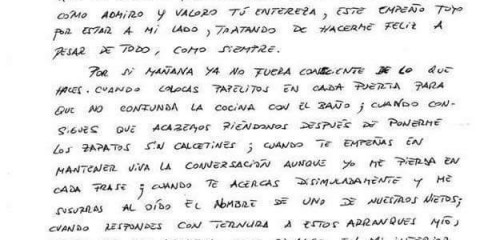 CÓMO ADMIRO Y VALORO TÚ ENTEREZA, ESTE EMPEÑO TUYO
POR ESTAR A MI LADO, TRATANDO DE HACERME FELIZ A
PESAR DE TODO, COMO SIEMPRE.
POR SI MAÑANA YA NO FUERA CONSCIENTE DE LO QUE
HACES. CUANDO COLOCAS PAPELITOS EN CADA PUERTA PARA
QUE NO CONFUNDA LA COCINA CON EL BAÑO; CUANDO CON-
SIGUES QUE ACABEMOS RIÉNDONOS DESPUÉS DE PONERME
LOS ZAPATOS SIN CALCETINES; CUANDO TE EMPEÑAS EN
MANTENER VIVA LA CONVERSACIÓN AUNQUE YO ME PIERDA EN
CADA FRASE; CUANDO TE ACERCAS DISIMULADAMENTE Y ME
SUSURRAS AL OÍDO EL NOMBRE DE UNO DE NUESTROS NIETOS;
CUANDO RESPONDES CON TERNURA A ESTOS ARRANQUES MÍO,
EN MI INTERIOR